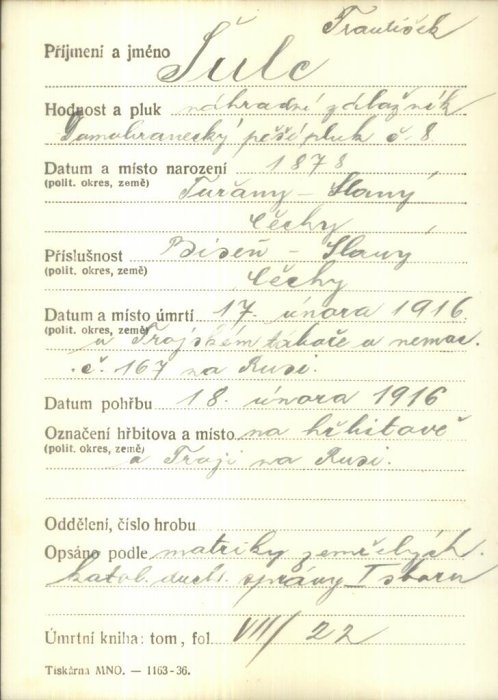 František
Příjmení a jméno Šulc
Hodnost a pluk náhradní záložník
Domobranecký pěší pluk č. 8
Datum a místo narození 1878,
(polit. okres, země) Tuřany – Slaný,
Čechy,
Příslušnost Biseň – Slaný
(polit. okres, země) Čechy
Datum a místo úmrtí 17. února 1916
(polit. okres, země) v Trojském táboře v nemoc.
č. 167 na Rusi.
Datum pohřbu 18. února 1916
Označení hřbitova a místo na hřbitově
(polit. okres, země) v Troji na Rusi.
Oddělení, číslo hrobu
Opsáno podle matriky zemřelých
katol. duch. správy I sboru
Úmrtní kniha: tom, fol. VIII/22
Tiskárna MNO. — 1163-36.